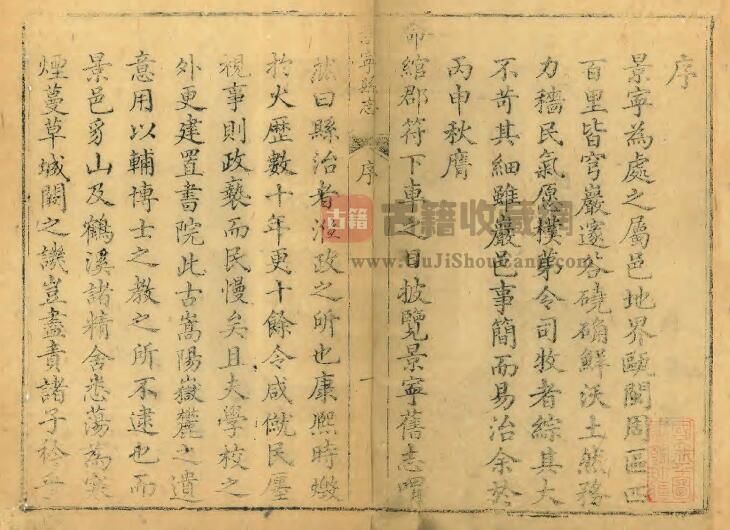 序
景寧為處之屬邑地界甌閩周區四
百里皆穹巖邃谷磽确鮮沃土然務
力穡民氣愿樸第令司牧者綜其大
不苛其細雖巖邑事簡而易治余於
丙申秋膺
命綰郡符下車之日披覽景寧舊志喟
景寧縣志
序
一
然曰縣治者涖政之所也康熙時燬
於火歷數十年更十餘令咸僦民廛
視事則政褻而民慢矣且夫學校之
外更建置書院此古嵩陽嶽麓之遺
意用以輔博士之教之所不逮也而
景邑豸山及鶴溪諸精舍悉蕩為寒
煙蔓草城闕之譏豈盡責諸子衿
古籍
古籍收藏網
www.GuJiShouCang.com